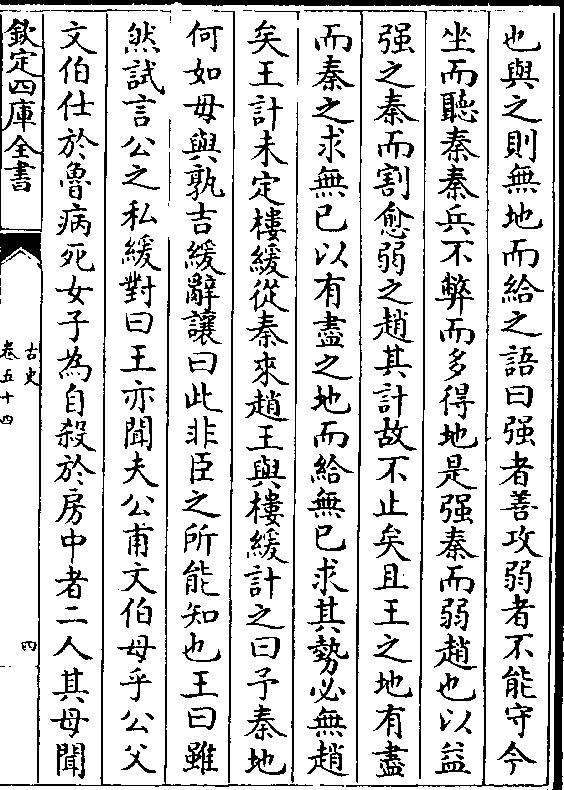 也與之則無地而給之語曰强者善攻弱者不能守今
坐而聽秦秦兵不弊而多得地是强秦而弱趙也以益
强之秦而割愈弱之趙其計故不止矣且王之地有盡
而秦之求無已以有盡之地而給無已求其勢必無趙
矣王計未定樓緩從秦來趙王與樓緩計之曰予秦地
何如毋與孰吉緩辭讓曰此非臣之所能知也王曰雖
然試言公之私緩對曰王亦聞夫公甫文伯母乎公父
文伯仕於魯病死女子為自殺於房中者二人其母聞
欽定四庫全書
古史
卷五十四
四